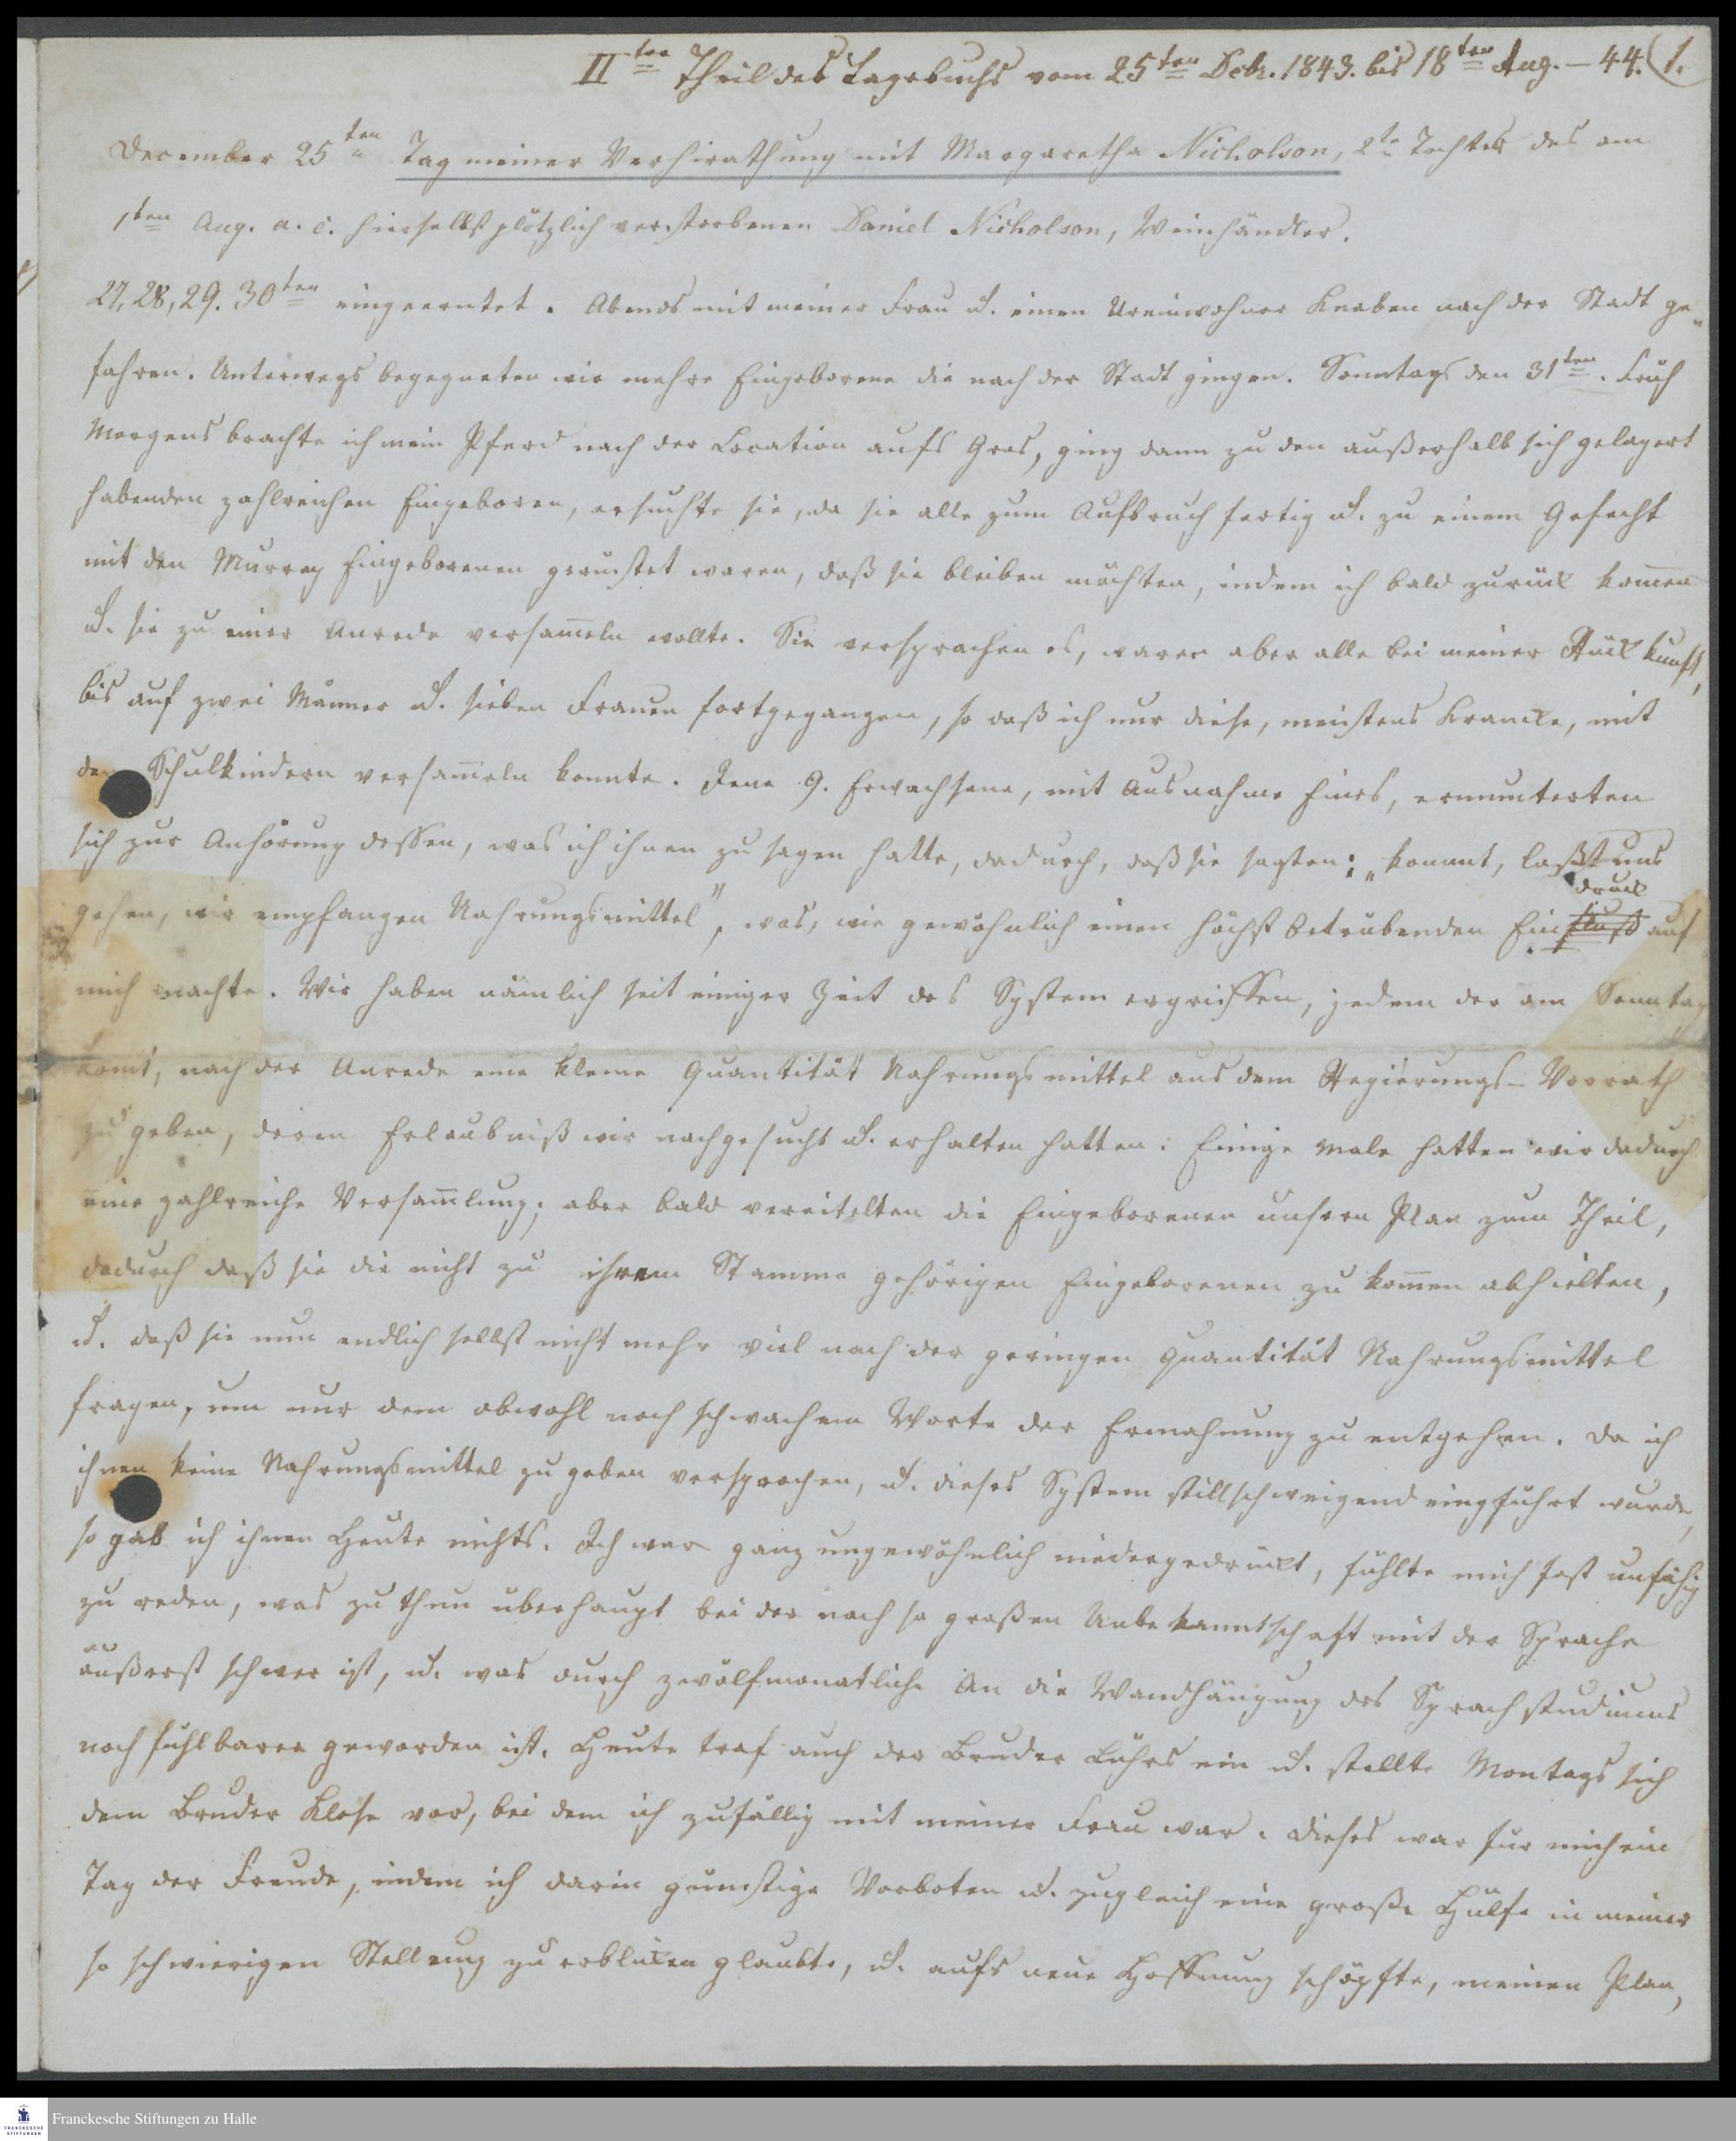 IIter Theil des Tagebuchs vom 25ten Debr. 1843. bis 18ten Aug. – 44. (1.
December 25ten Tag meiner Verhirathung mit Margaretha Nicholson, 2te Tochter des am
1ten Aug. a. c. hierselbst plötzlich verstorbenen Daniel Nicholson, Weinhändler.
27, 28, 29. 30ten eingeerntet. Abends mit meiner Frau u. einen Ureinwohner Knaben nach der Stadt ge-
fahren. Unterwegs begegneten wir mehre Eingeborene die nach der Stadt gingen. Sonntags den 31ten. Früh
Morgens brachte ich mein Pferd nach der Location aufs Gras, ging dann zu den außerhalb sich gelagert
habenden zahlreichen Eingeboren, ersuchte sie, da sie alle zum Aufbruch fertig u. zu einem Gefecht
mit den Murray Eingeborenen gerüstet waren, daß sie bleiben möchten, indem ich bald zurück kom̅en
u. sie zu einer Anrede versam̅eln wollte. Sie versprachen es, waren aber alle bei meiner Rückkunft,
bis auf zwei Männer u. sieben Frauen fortgegangen, so daß ich nur diese, meistens Krancke, mit
den Schulkindern versam̅eln konnte. Jene 9. Erwachsene, mit Ausnahme Eines, ermunterten
sich zur Anhörung dessen, was ich ihnen zu sagen hatte, dadurch, daß sie sagten: „kommt, laßt uns
gehen, wir empfangen Nahrungsmittel", was, wie gewöhnlich einen höchst betrübenden Einfluß druck auf
mich machte. Wir haben nämlich seit einiger Zeit das System ergriffen, jedem der am Sonntag
kom̅t, nach der Anrede eine kleine Quantität Nahrungsmittel aus dem Regierungs-Vorrath
zu geben, deren Erlaubniß wir nachgesucht u. erhalten hatten. Einige Male hatten wir dadurch
eine zahlreiche Versam̅lung; aber bald vereitelten die Eingeborenen unsern Plan zum Theil,
dadurch daß sie die nicht zu ihrem Stamme gehörigen Eingeborenen zu kom̅en abhielten,
u. daß sie nun endlich selbst nicht mehr viel nach der geringen Quantität Nahrungsmittel
fragen, um nur dem obwohl noch schwachem Worte der Ermahnung zu entgehen. Da ich
ihnen keine Nahrungsmittel zu geben versprochen, u. dieses System stillschweigend eingführt wurde,
so gab ich ihnen Heute nichts. Ich war ganz ungewöhnlich niedergedrückt, fühlte mich fast unfähig
zu reden, was zu thun überhaupt bei der noch so großen Unbekanntschaft mit der Sprache
äußerst schwer ist, u. was durch zwölfmonatliche An die Wandhängung des Sprachstudiums
noch fühlbarer geworden ist. Heute traf auch der Bruder Lührs ein u. stellte Montags sich
dem Bruder Klose vor, bei dem ich zufällig mit meiner Frau war. Dieses war für mich ein
Tag der Freude, indem ich darin günstige Vorboten u. zugleich eine große Hülfe in meiner
so schwierigen Stellung zu erblicken glaubte, u. aufs neue Hoffnung schöpfte, meinen Plan,
FRANCKESCHE STIFTUNGEN
Franckesche Stiftungen zu Halle